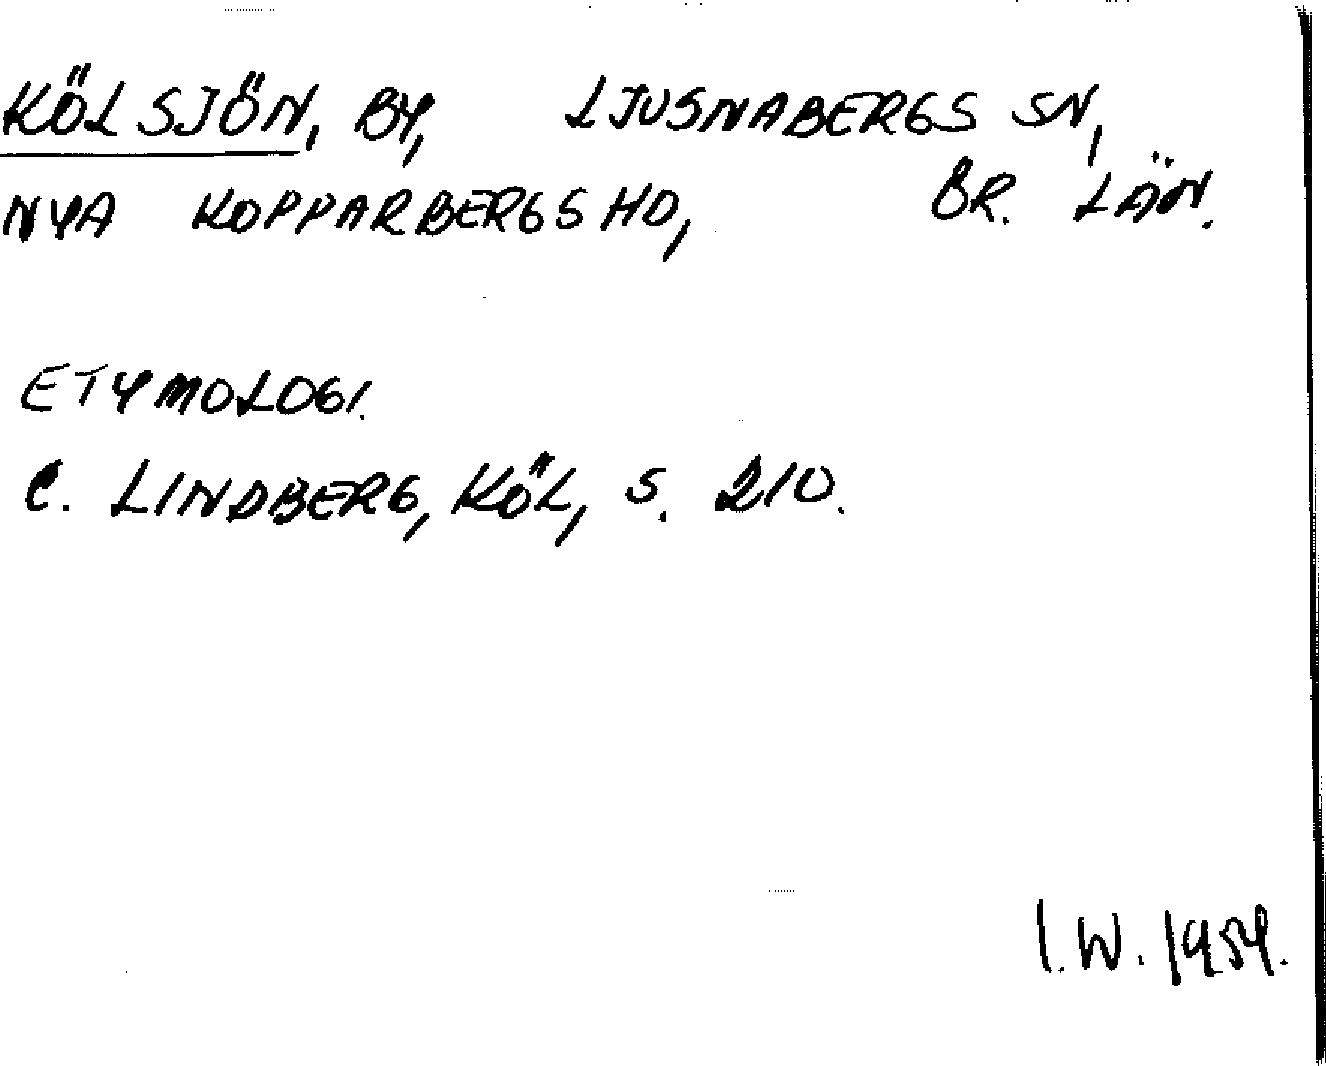 KÖLSJÖN, BY, LJUSNABERGS SN,
NYA KOPPARBERGS HD, ÖR. LÄN.
ETYMOLOGI.
C. LINDBERG, KÖL, S. 210.
I.W. 1959.